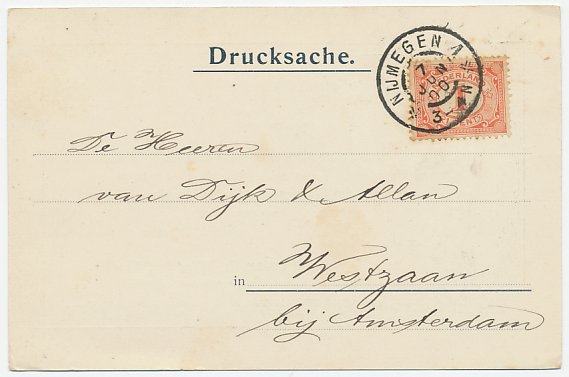 Drucksache.
NIJMEGEN
7 JUN 00
3-
NEDERLAND
De Heeren
van Dijk & Allan
in Westzaan
bij Amsterdam